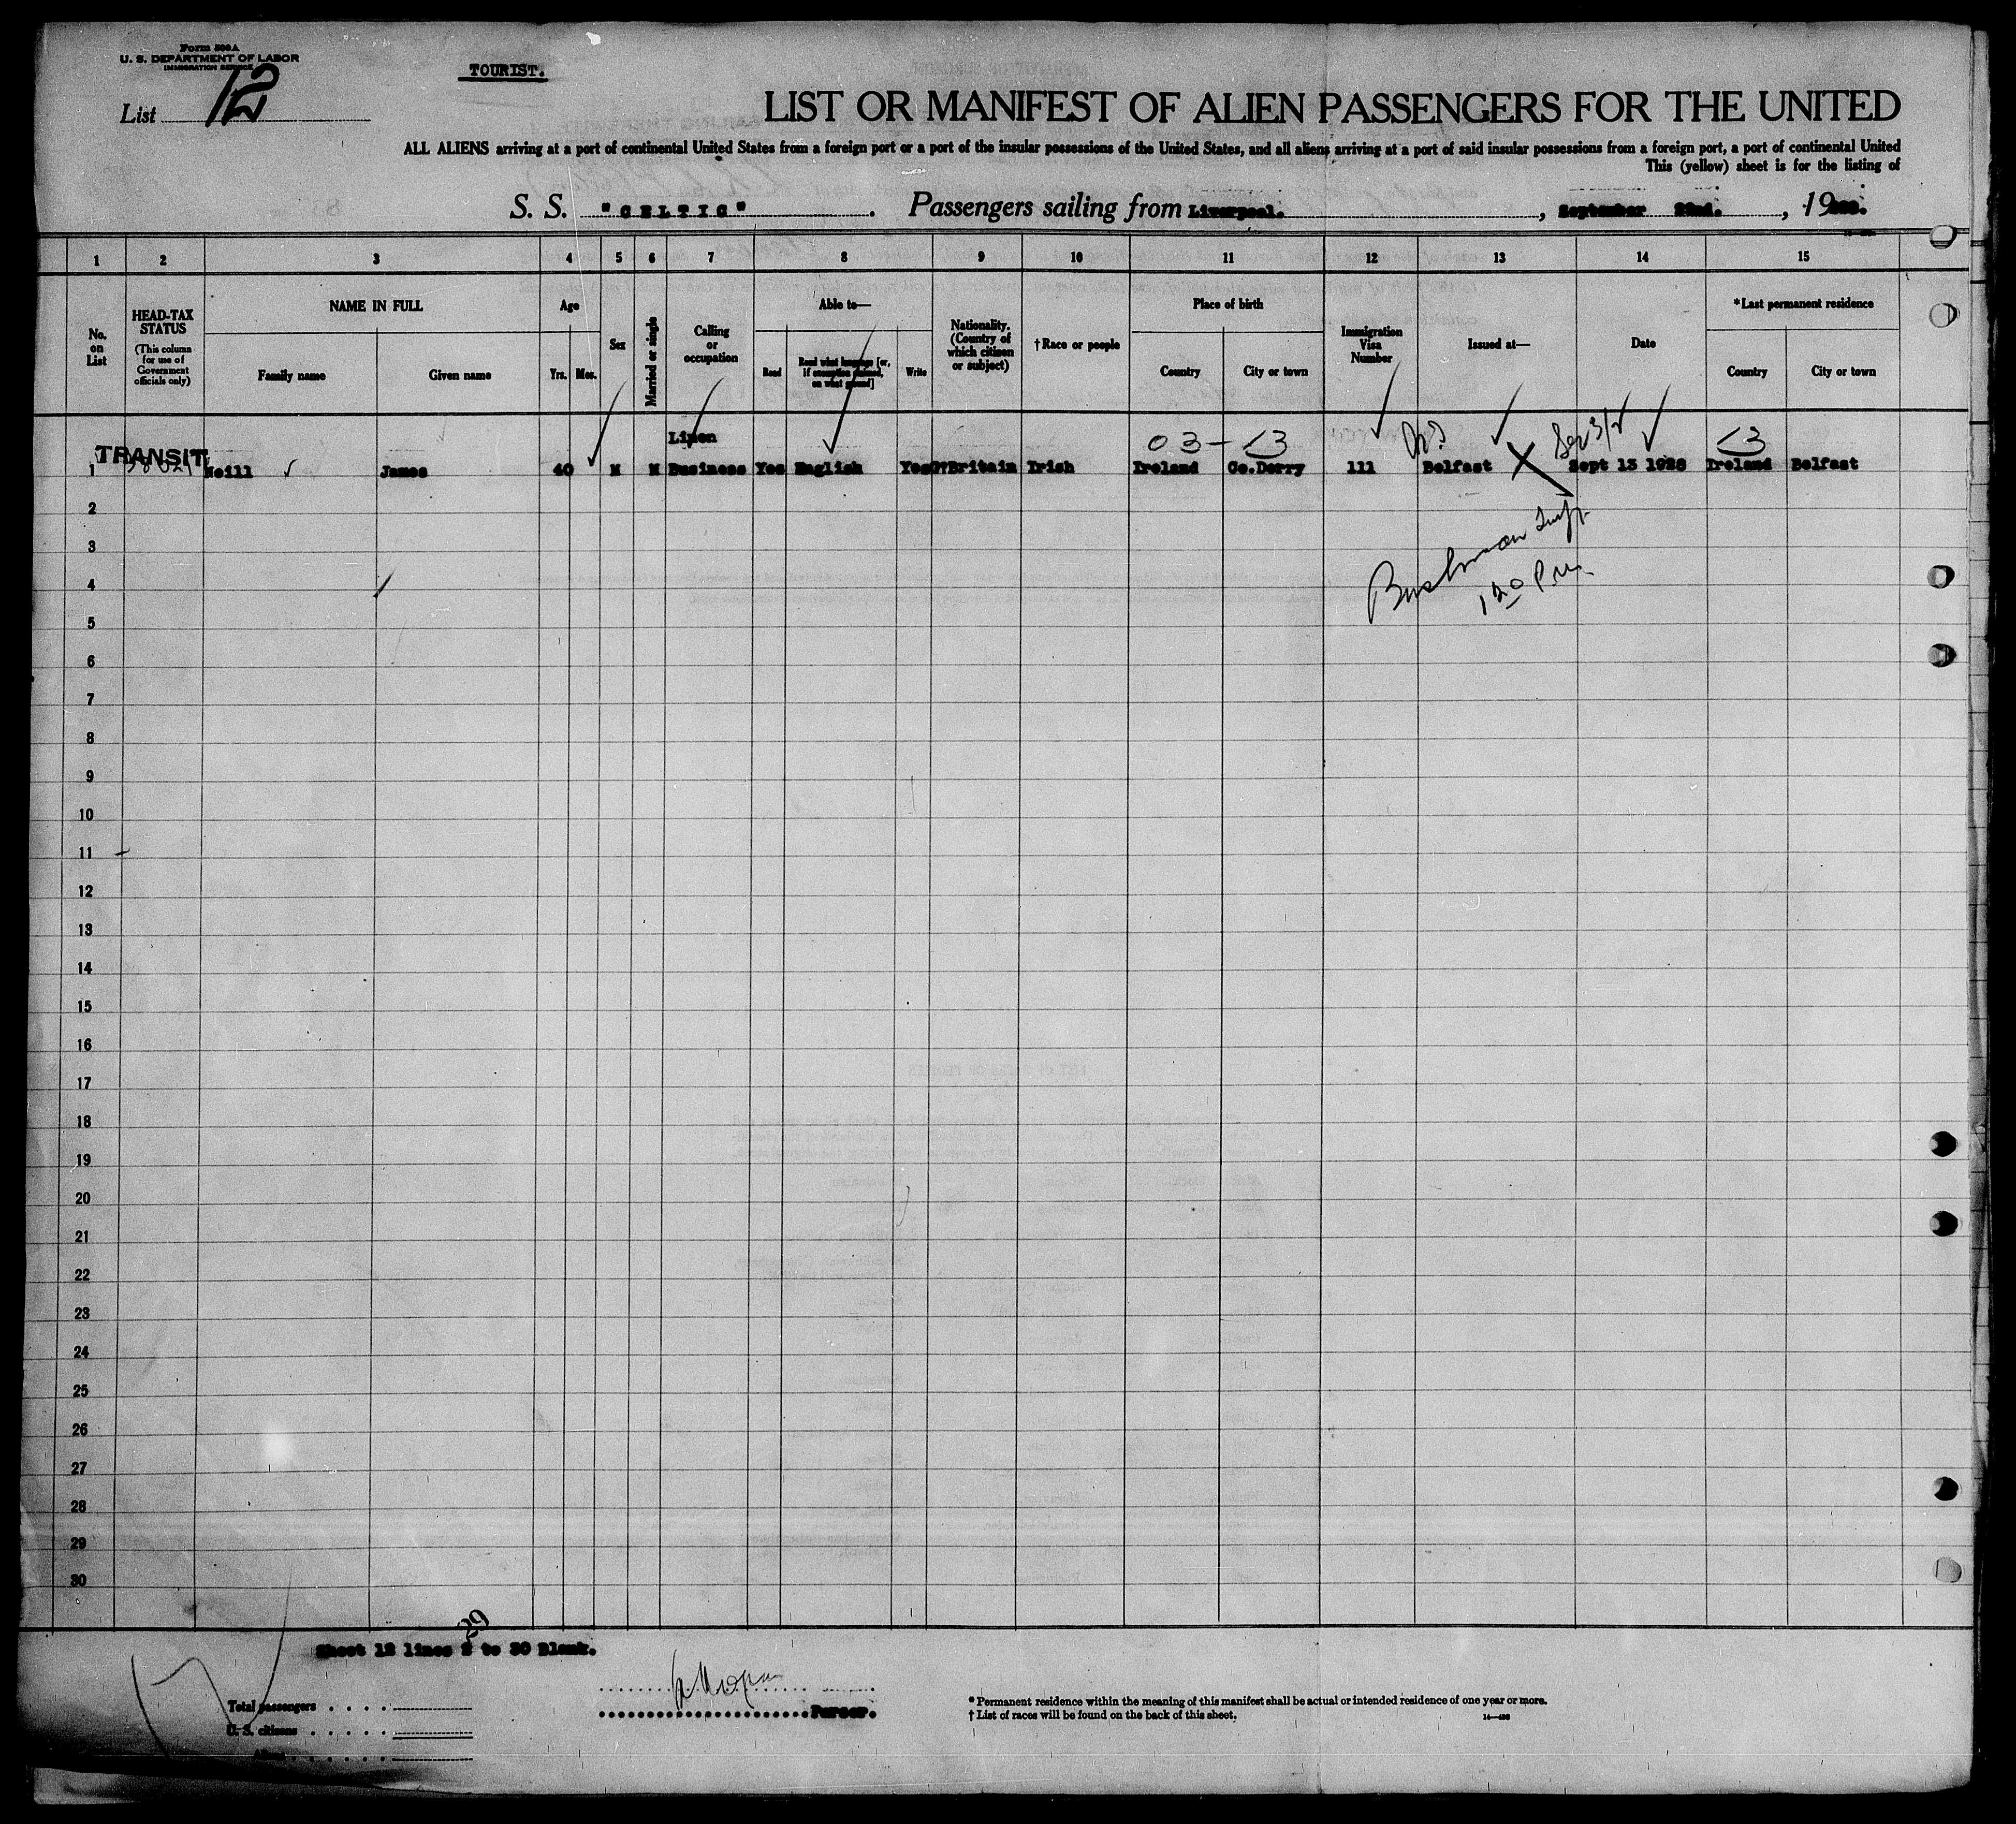 Form 500A
U. S. DEPARTMENT OF LABOR
IMMIGRATION SERVICE
TOURIST.
List 12
LIST OR MANIFEST OF ALIEN PASSENGERS FOR THE UNITED
ALL ALIENS arriving at a port of continental United States from a foreign port or a port of the insular possessions of the United States, and all aliens arriving at a port of said insular possessions from a foreign port, a port of continental United
This (yellow) sheet is for the listing of
S. S. "CELTIC". Passengers sailing from Liverpool., September 22nd., 19
1 2 3 4 5 6 7 8 9 10 11 12 13 14 15
No. on List
HEAD-TAX STATUS (This column for use of Government officials only)
NAME IN FULL
Family name
Given name
Age
Yrs. Mos.
Sex
Married or single
Calling or occupation
Able to—
Read
Read what language [or, if exemption claimed, on what ground]
Write
Nationality. (Country of which citizen or subject)
†Race or people
Place of birth
Country
City or town
Immigration Visa Number
Issued at—
Date
*Last permanent residence
Country
City or town
03 - <3
<3
TRANSIT
Linen
1 Neill James 40 M M Business Yes English Yes Gt Britain Irish Ireland Co.Derry 111 Belfast Sept 13 1928 Ireland Belfast
2
3
4
5
6
7
8
9
10
11
12
13
14
15
16
17
18
19
20
21
22
23
24
25
26
27
28
29
30
29
Sheet 12 lines 2 to 30 Blank.
Purser.
Total passengers
U. S. citizens
Aliens
* Permanent residence within the meaning of this manifest shall be actual or intended residence of one year or more.
† List of races will be found on the back of this sheet.